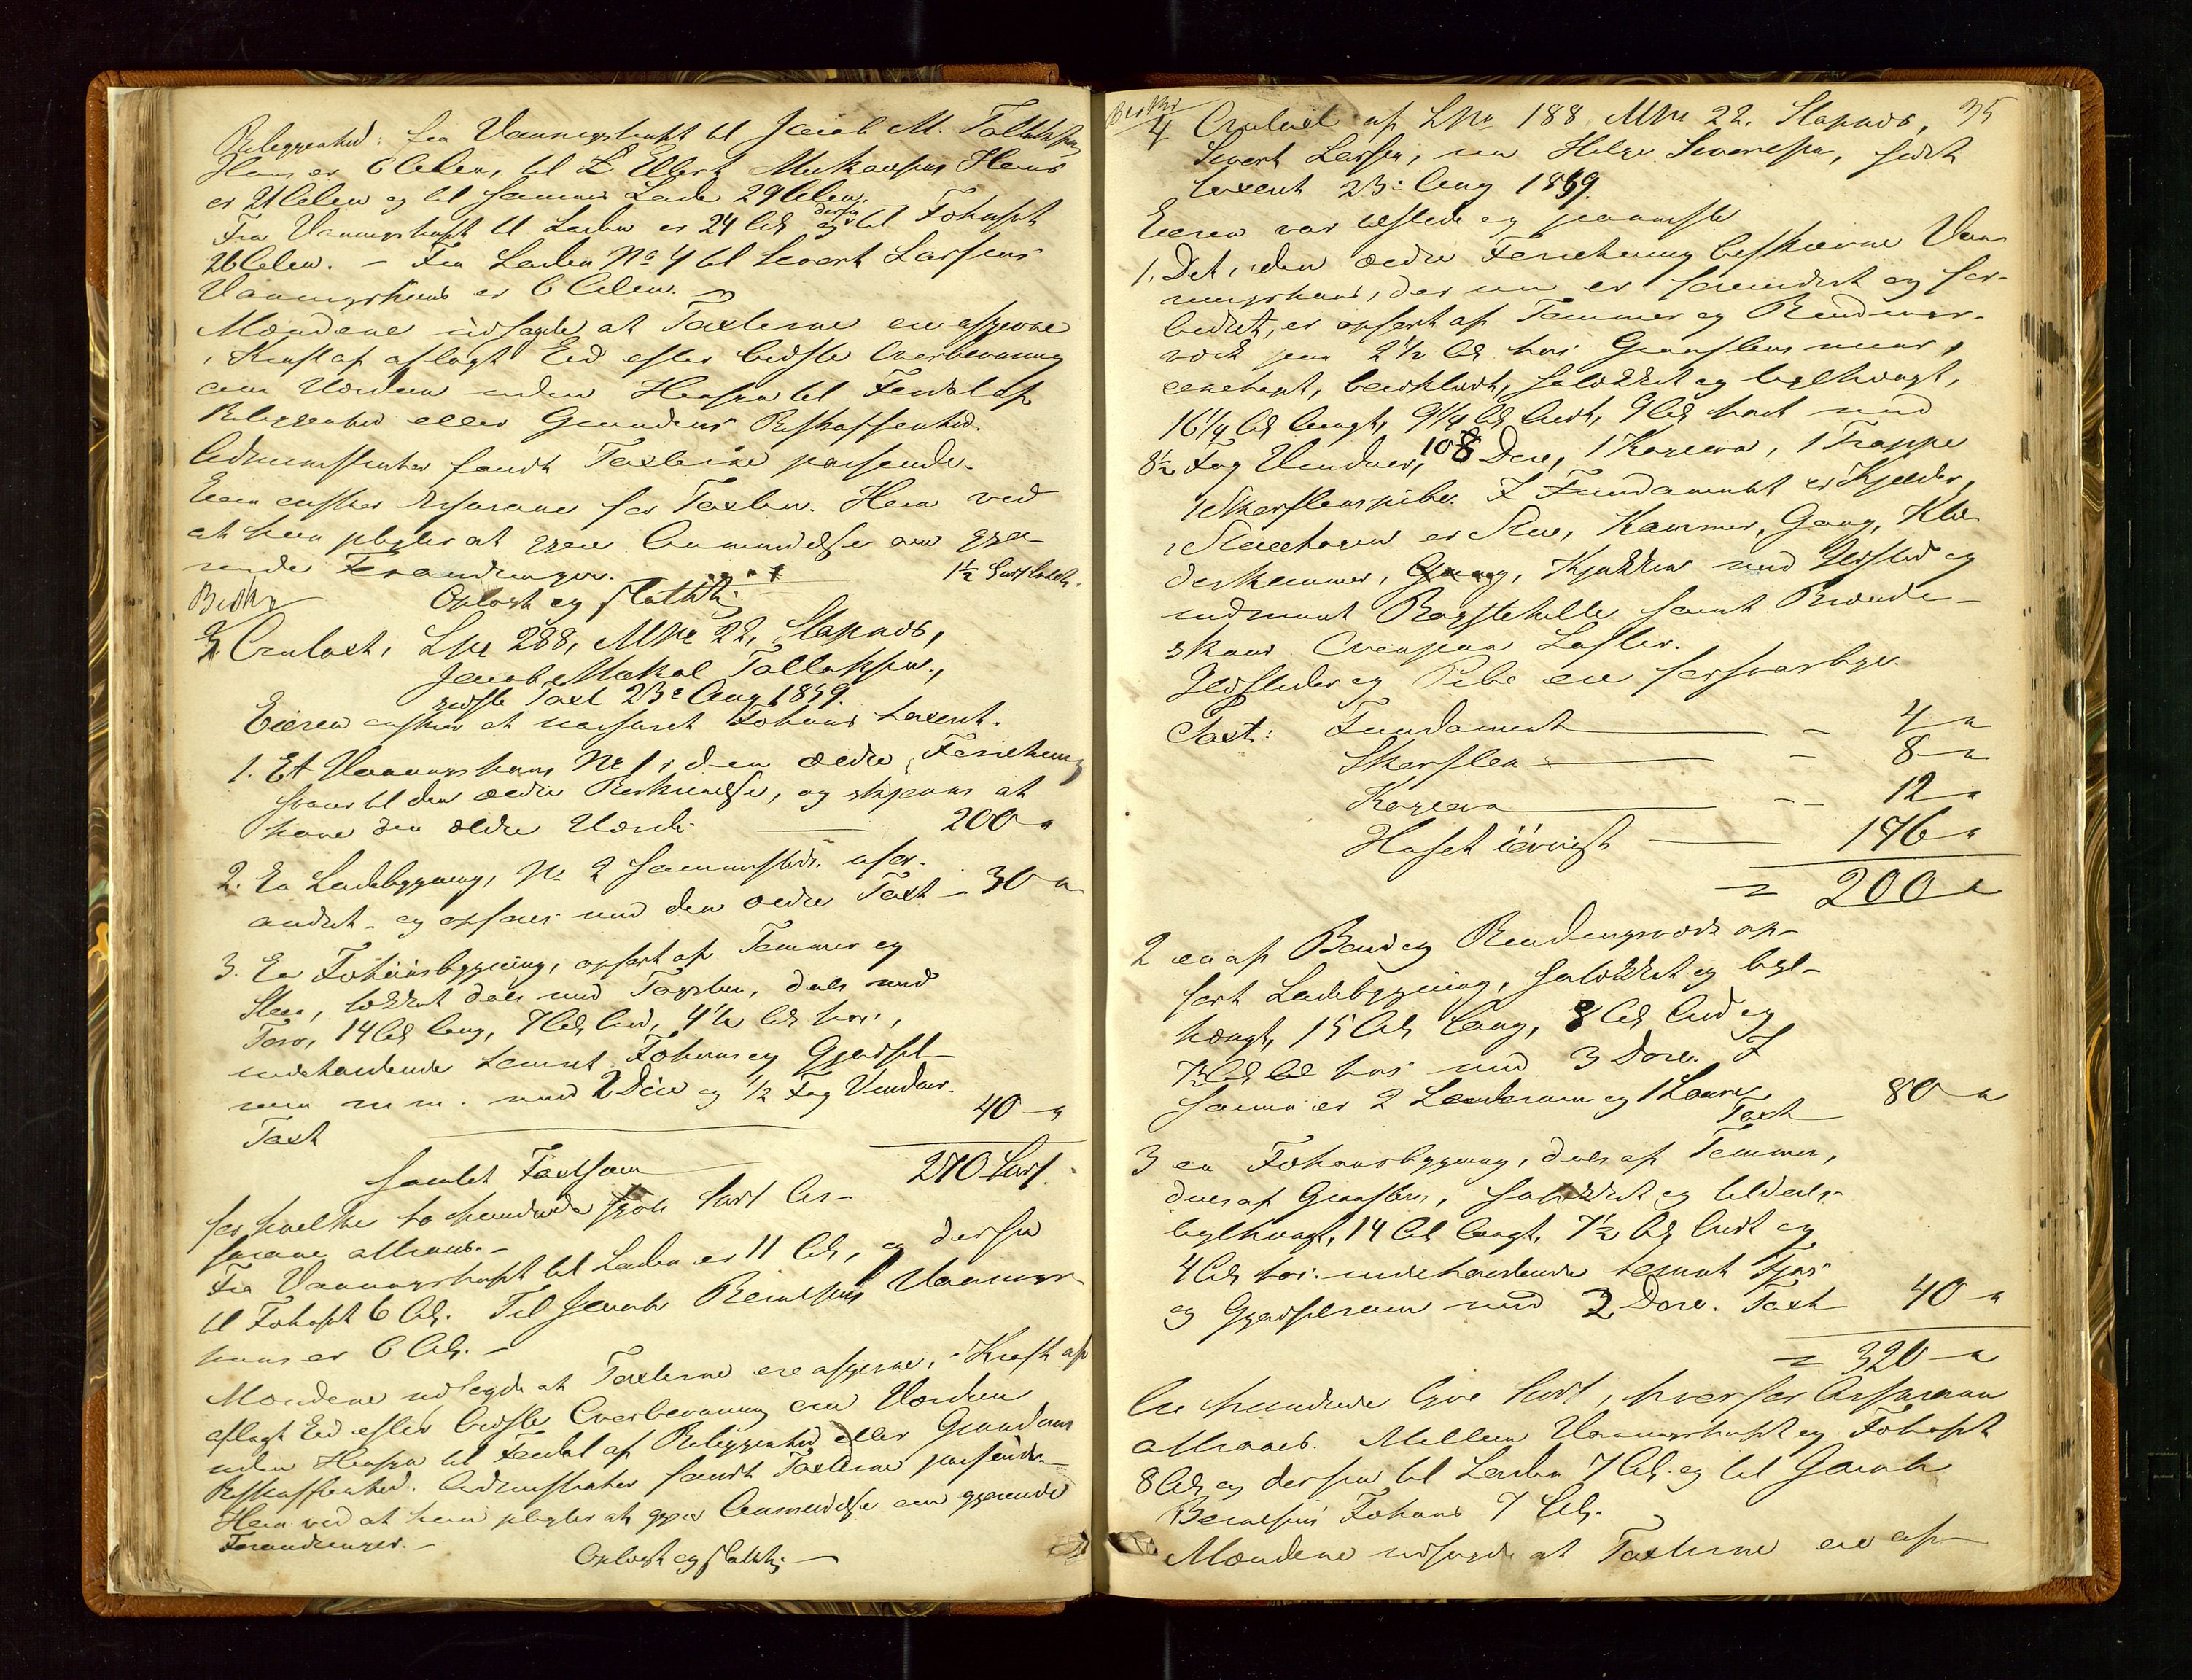 Beliggenhed: fra Vaaningshuset til Jacob M. Tollaksens
Huus er 6 Alen, til Ellert Mikkelsens Huus
er 21 Alen og til samme Lade 29 Alen.
Fra Vaaningshuset til Laden er 24 Al. og derfra til Fæhuset
26 Alen. – Fra Laden No 4 til Sivert Larsens
Vaaningshuus er 6 Alen. –
Mændene udsagde at Taxterne ere afgivne
i Kraft af aflagt Eed efter bedste Overbeviisning
om Værdien uden Hensyn til Fordel af
Beliggenhed eller Grundens Beskaffenhed.
Administrator fandt Taxterne passende.
Eieren ønsker Assurance for Taxten. Han ved
at han pligter at gjøre Anmeldelse om gjø-
rende Forandringer. 1½ Sølvskill.
Beskr Oplæst og sluttet.
3. Omtaxt, Lnr 288, Mnr 22, Slapnæs,
Jacob Mikal Tollaksen,
sidste Taxt 23e Aug 1859.
Eieren ønsker et uassureret Fæhuus taxeret.
1. Et Vaaningshuus No 1 i den ældre Forretning
svarer til den ældre Beskrivelse, og skjønnes at
have den ældre Værdi — 200 "
2. En Ladebygning, No 2 sammesteds. ufor-
andret og opføres med den ældre Taxt – 30 "
3. En Fæhuusbygning, opført af Tømmer og
Steen, tækket deels med Tagsteen, deels med
Torv, 14 Al. lang, 7 Al. bred, 4½ Al. høi,
indeholdende tømret Fæhuus og Gjødsel-
rum m. m. med 2 Døre og ½ Fag Vinduer.
Taxt — 40 – "
Samlet Taxtsum — 270 Spd.
for hvilke to hundrede syvti Spd As-
surance attraaes. –
Fra Vaaningshuset til Laden er 11 Al., og derfra
til Fæhuset 6 Al. Til Jacob Berntsens Vaanings-
huus er 6 Al. –
Mændene udsagde at Taxterne ere afgivne i Kraft af
aflagt Eed efter bedste Overbeviisning om Værdien
uden Hensyn til Fordel af Beliggenhed eller Grundens
Beskaffenhed. Administrator fandt Taxterne passende. –
Han ved at han pligter at gjøre Anmeldelse om gjørende
Forandringer. –
Oplæst og sluttet. —
Beskr 35
4 Omtaxt af Lnr 188 Mnr 22. Slapnæs,
Sivert Larsen, nu Helge Sivertsen, sidst
taxeret 23: Aug 1859.
Eieren var tilstede og paaviste
1. Det i den ældre Forretning beskrevne Vaa-
ningshuus, der nu er forandret og for-
bedret, er opført af Tømmer og Bindings-
værk paa 2½ Al. høi Graasteens muur,
eenetages, bordklædt, sutækket og teglhængt,
16¼ Al. langt, 9¼ Al. bredt, 9 Al. høit med
8½ Fag Vinduer, 10 Døre, 1 Kogeovn, 1 Trappe
1 Skorsteenspibe. I Fundamentet er Kjelder,
i Stueetagen er Stue, Kammer, Gang, Klæ-
dekammer, Gang, Kjøkken med Ildsted og
indmuret Bagstehelle samt Brænde-
skuur. Ovenpaa Lofter.
Ildsteder og Pibe ere forsvarlige.
Taxt: Fundament — – 4 "
Skorsteen — – 8 "
Kogeovn — – 12 "
Huset iøvrigt — 176 "
= 200 "
2 en af Bord og Bindingsværk op-
ført Ladebygning, sutækket og tegl-
hængt, 15 Al. lang, 8 Al. bred og
7½ Al. høi med 3 Døre. I
samme er 2 Laderum og 1 Laave
Taxt 80 "
3 en Fæhuusbygning, deels af Tømmer,
deels af Graasteen, sutækket og tildeels
teglhængt, 14 Al. langt, 7½ Al. bredt og
4 Al. høi. indeholdende tømret Fjøs
og Gjødselrum med 2 Døre. Taxt 40 "
= 320 "
tre hundrede tyve Spd, hvorfor Assurance
attraaes. Mellem Vaaningshuset og Fæhuset
8 Al. og derfra til Laden 7 Al. og til Jacob
Berntsens Fæhuus 7 Al.
Mændene udsagde at Taxterne ere af-